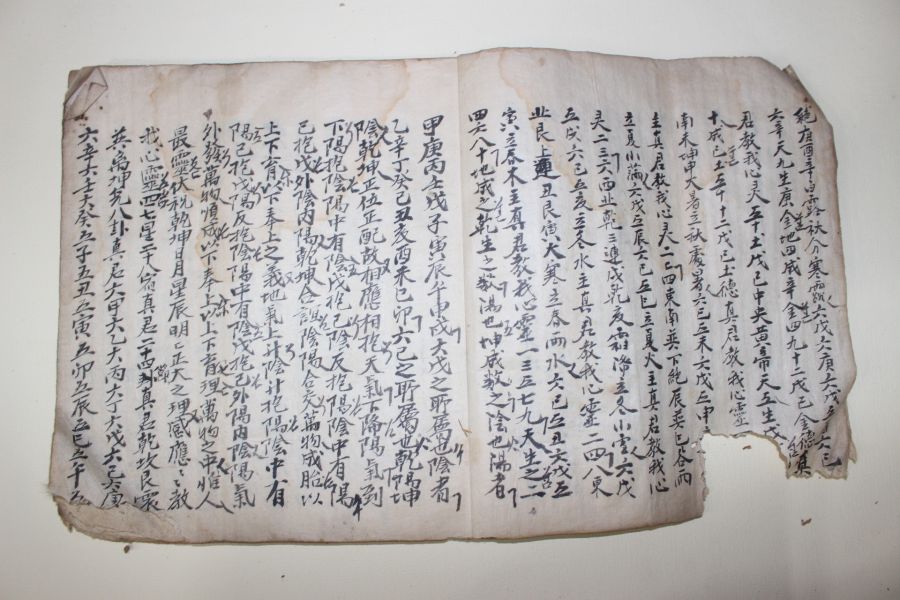 絶庚酉辛白露秋分寒露六戊六庚六
六辛天九生庚金地四成辛金四九十二戊己金德真
君教我心灵五十土戊己中央黄帝天五生戊
十成己土五十十二戊己土德真君教我心靈
南未坤申大者立秋處暑六己五未六戊五申
主真君教我心灵一己四東南巽下絶辰巽巳谷雨
立夏小滿六戊五辰六己五巳立夏火主真君教我心
灵一三六西北乾三連戌乾亥霜降立冬小雪六戊
五戌六己五亥立冬水主真君教我心靈二四八東
北艮上連丑艮寅大寒立春雨水六己五丑六戊五
寅立春木主真君教我心靈一三五七九天生之二
四六八十地成之乾生之教陽也坤成教之陰也陽者
甲庚丙壬戊子寅辰午申戌六戊之所屬也陰者
乙辛丁癸己丑亥酉未巳卯六己之所屬也乾與坤
陰乾坤正位正配故相應相抱天氣下降陽氣到
下抱陰陽中有陰戊抱己陰反抱陽陰中有陽
己抱戊外陰內陽乾坤合誤陰陽合炁萬物成胎以
上下育以下奉上之義地氣上升陰升抱陽陰中有
陽己抱戊陽反抱陰陽中有陰戊抱己外陽內陰陽氣
外發萬物順成以下奉上以上下育理萬物之中惟人
最靈伏祝乾坤日月星辰明正大之理感應教
我心靈四七星二十八宿真君二十四真君乾坎艮震
巽离坤兌八卦真君六甲六乙六丙六丁六戊六己六庚
六辛六壬六癸五子五丑五寅五卯五辰五巳五午五